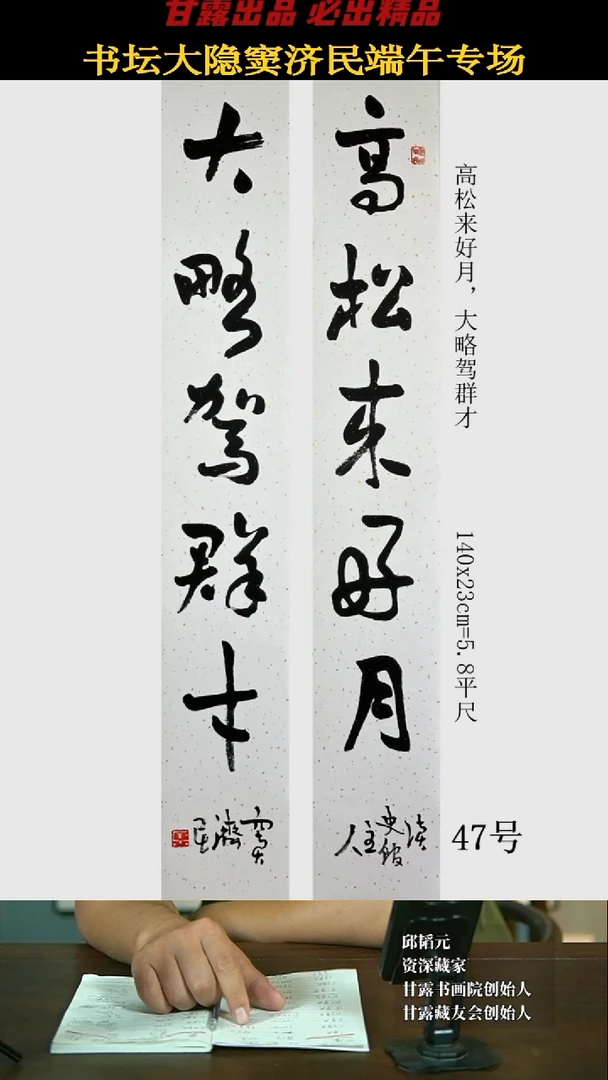 甘露出品 必出精品
书坛大隐窦济民端午专场
高松来好月
大略驾群才
读史馆主人
窦济民
高松来好月，大略驾群才
140x23cm=5.8平尺
47号
邱韬元
资深藏家
甘露书画院创始人
甘露藏友会创始人